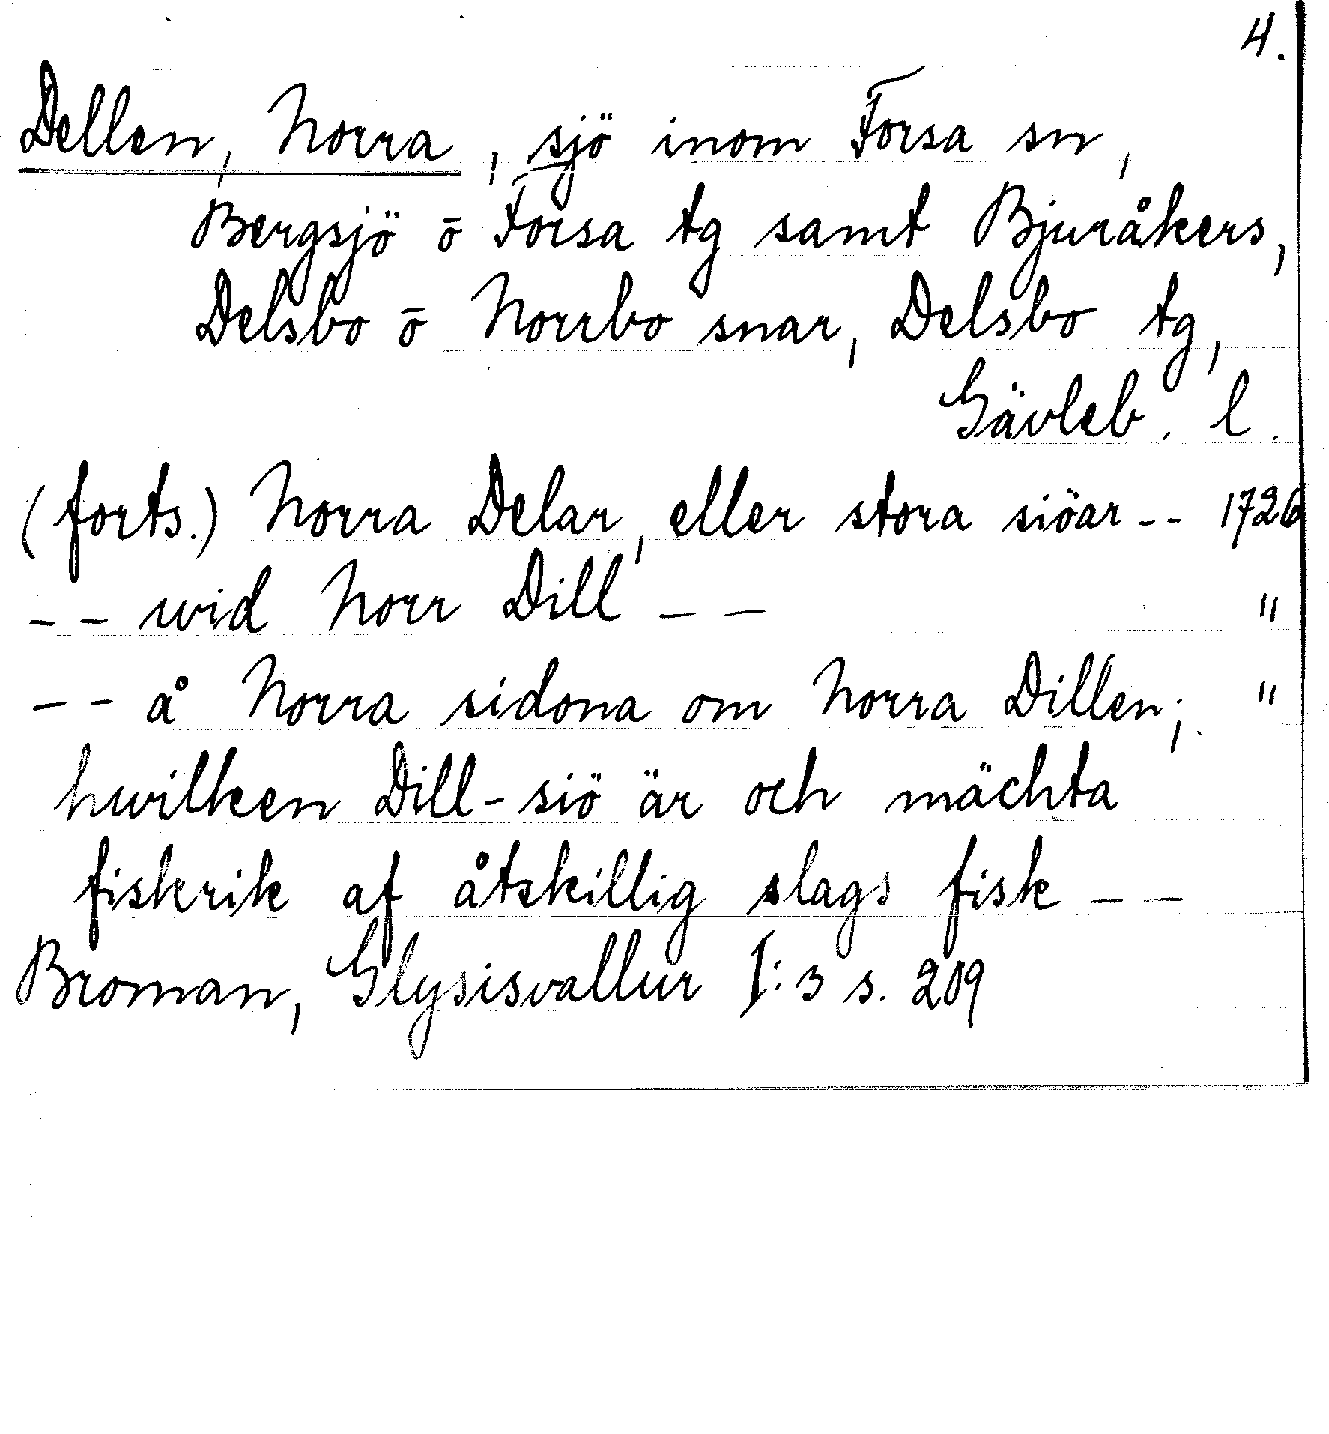 4.
Dellen, Norra, sjö inom Forsa sn,
Bergsjö o Forsa tg samt Bjuråkers,
Delsbo o Norrbo snar, Delsbo tg,
Gävleb. l.
(forts.) Norra Delar, eller stora siöar -- 1726
-- wid Norr Dill -- "
-- å Norra sidona om Norra Dillen; "
hwilken Dill-siö är och mächta
fiskrik af åtskillig slags fisk --
Broman, Glysisvallur I:3 s. 209